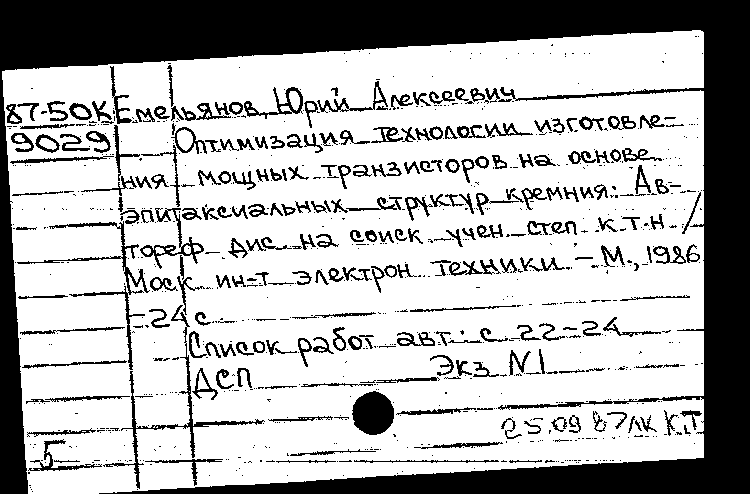 87-50К Емельянов, Юрий Алексеевич
9029 Оптимизация технологии изготовле-
ния мощных транзисторов на основе
эпитаксиальных структур кремния: Ав-
тореф дис на соиск учен степ к.т.н /
Моск ин-т электрон техники - М., 1986
-24 с
Список работ авт.: с 22-24
ДСП Экз N1
25.09 87 лк К.Т
5